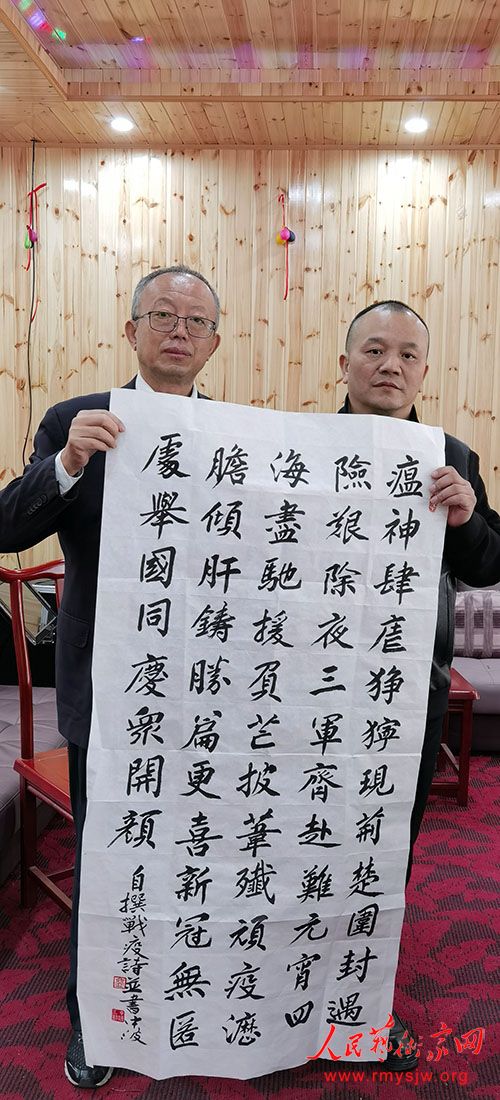 瘟神肆虐猙獰現荊楚圍封遇
險艱除夜三軍齊赴難元宵四
海盡馳援負芒披葦殲頑疫瀝
膽傾肝鑄勝篇更喜新冠無匿
處舉國同慶衆開顏
自撰戰疫詩並書
人民藝術家网
www.rmysjw.org